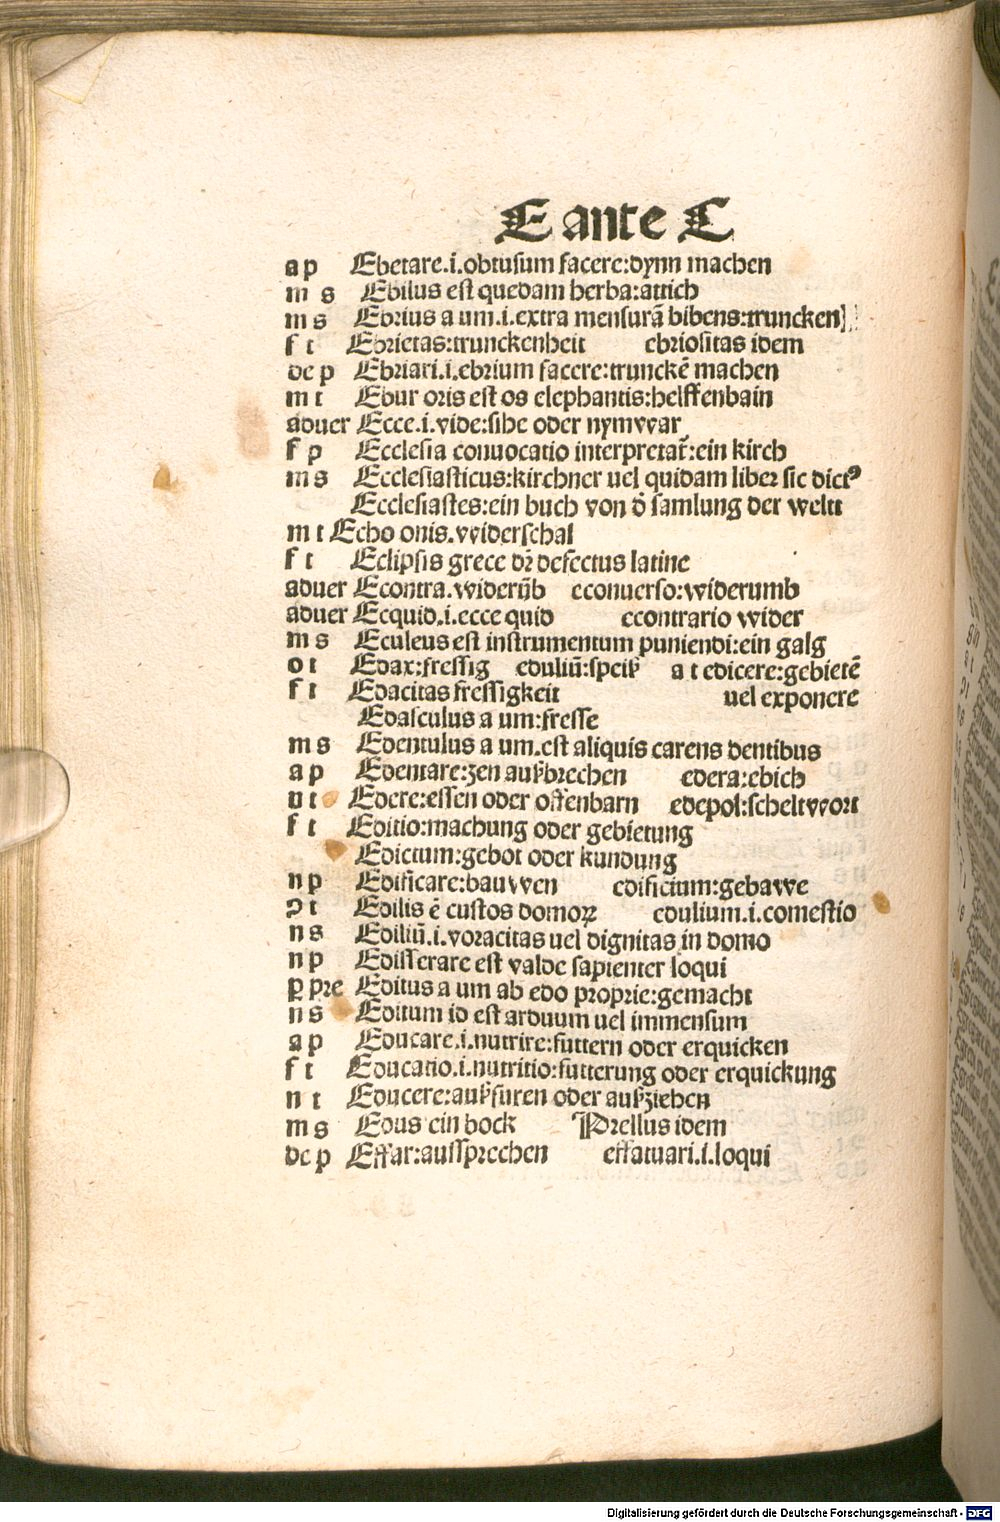 E ante C
a p Ebetare.i.obtusum facere:dynn machen
m s Ebilus est quedam herba:attich
m s Ebrius a um.i.extra mensurā bibens:truncken
f t Ebrietas:trunckenheit ebriositas idem
de p Ebriari.i.ebrium facere:trunckē machen
m t Ebur oris est os elephantis:helffenbain
aduer Ecce.i.vide:sihe oder nymvvar
f p Ecclesia conuocatio interpretat̃:ein kirch
m s Ecclesiasticus:kirchner uel quidam liber sic dictꝰ
Ecclesiastes:ein buch von d̕ samlung der welt
m t Echo onis.vviderschal
f t Eclipsis grece dr̄ defectus latine
aduer Econtra.widerūb econuerso:widerumb
aduer Ecquid.i.ecce quid econtrario wider
m s Eculeus est instrumentum puniendi:ein galg
o t Edax:fressig eduliū:speiß a t edicere:gebietē
f t Edacitas fressigkeit uel exponere
Edasculus a um:fresse
m s Edentulus a um.est aliquis carens dentibus
a p Edentare:zen außbrechen edera:ebich
n t Edere:essen oder offenbarn edepol:scheltvvort
f t Editio:machung oder gebietung
Edictum:gebot oder kundung
n p Edificare:bauwen edificium:gebawe
ꝯ t Edilis ē custos domoꝝ edulium.i.comestio
n s Ediliū.i.voracitas uel dignitas in domo
n p Edisserare est valde sapienter loqui
ꝑ pre Editus a um ab edo proprie:gemacht
n s Editum id est arduum uel immensum
a p Educare.i.nutrire:futtern oder erquicken
f t Educatio.i.nutritio:futterung oder erquickung
n t Educere:außfuren oder außziehen
m s Edus ein bock Prellus idem
de p Effar:aussprechen effatuari.i.loqui
Digitalisierung gefördert durch die Deutsche Forschungsgemeinschaft - DFG